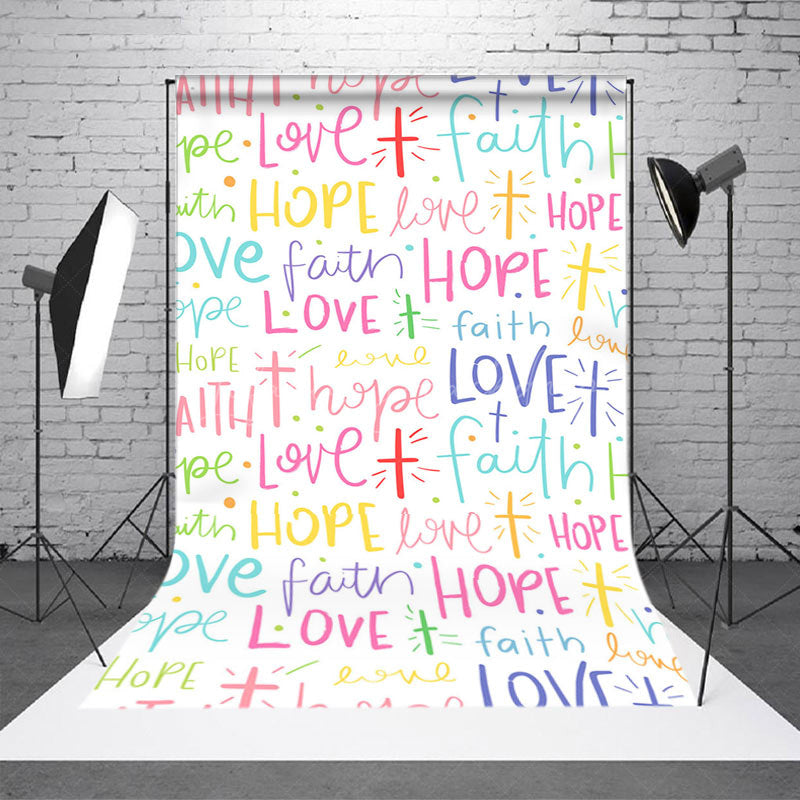 AITH hope LOVE
pe LOVE faith H
aith HOPE love HOPE
OVE faith HOPE h
ope LOVE faith love
HOPE love LOVE
AITH hope
pe LOVE faith H
aith HOPE love HOPE
OVE faith HOPE h
ope LOVE faith love
HOPE love LOVE
hope